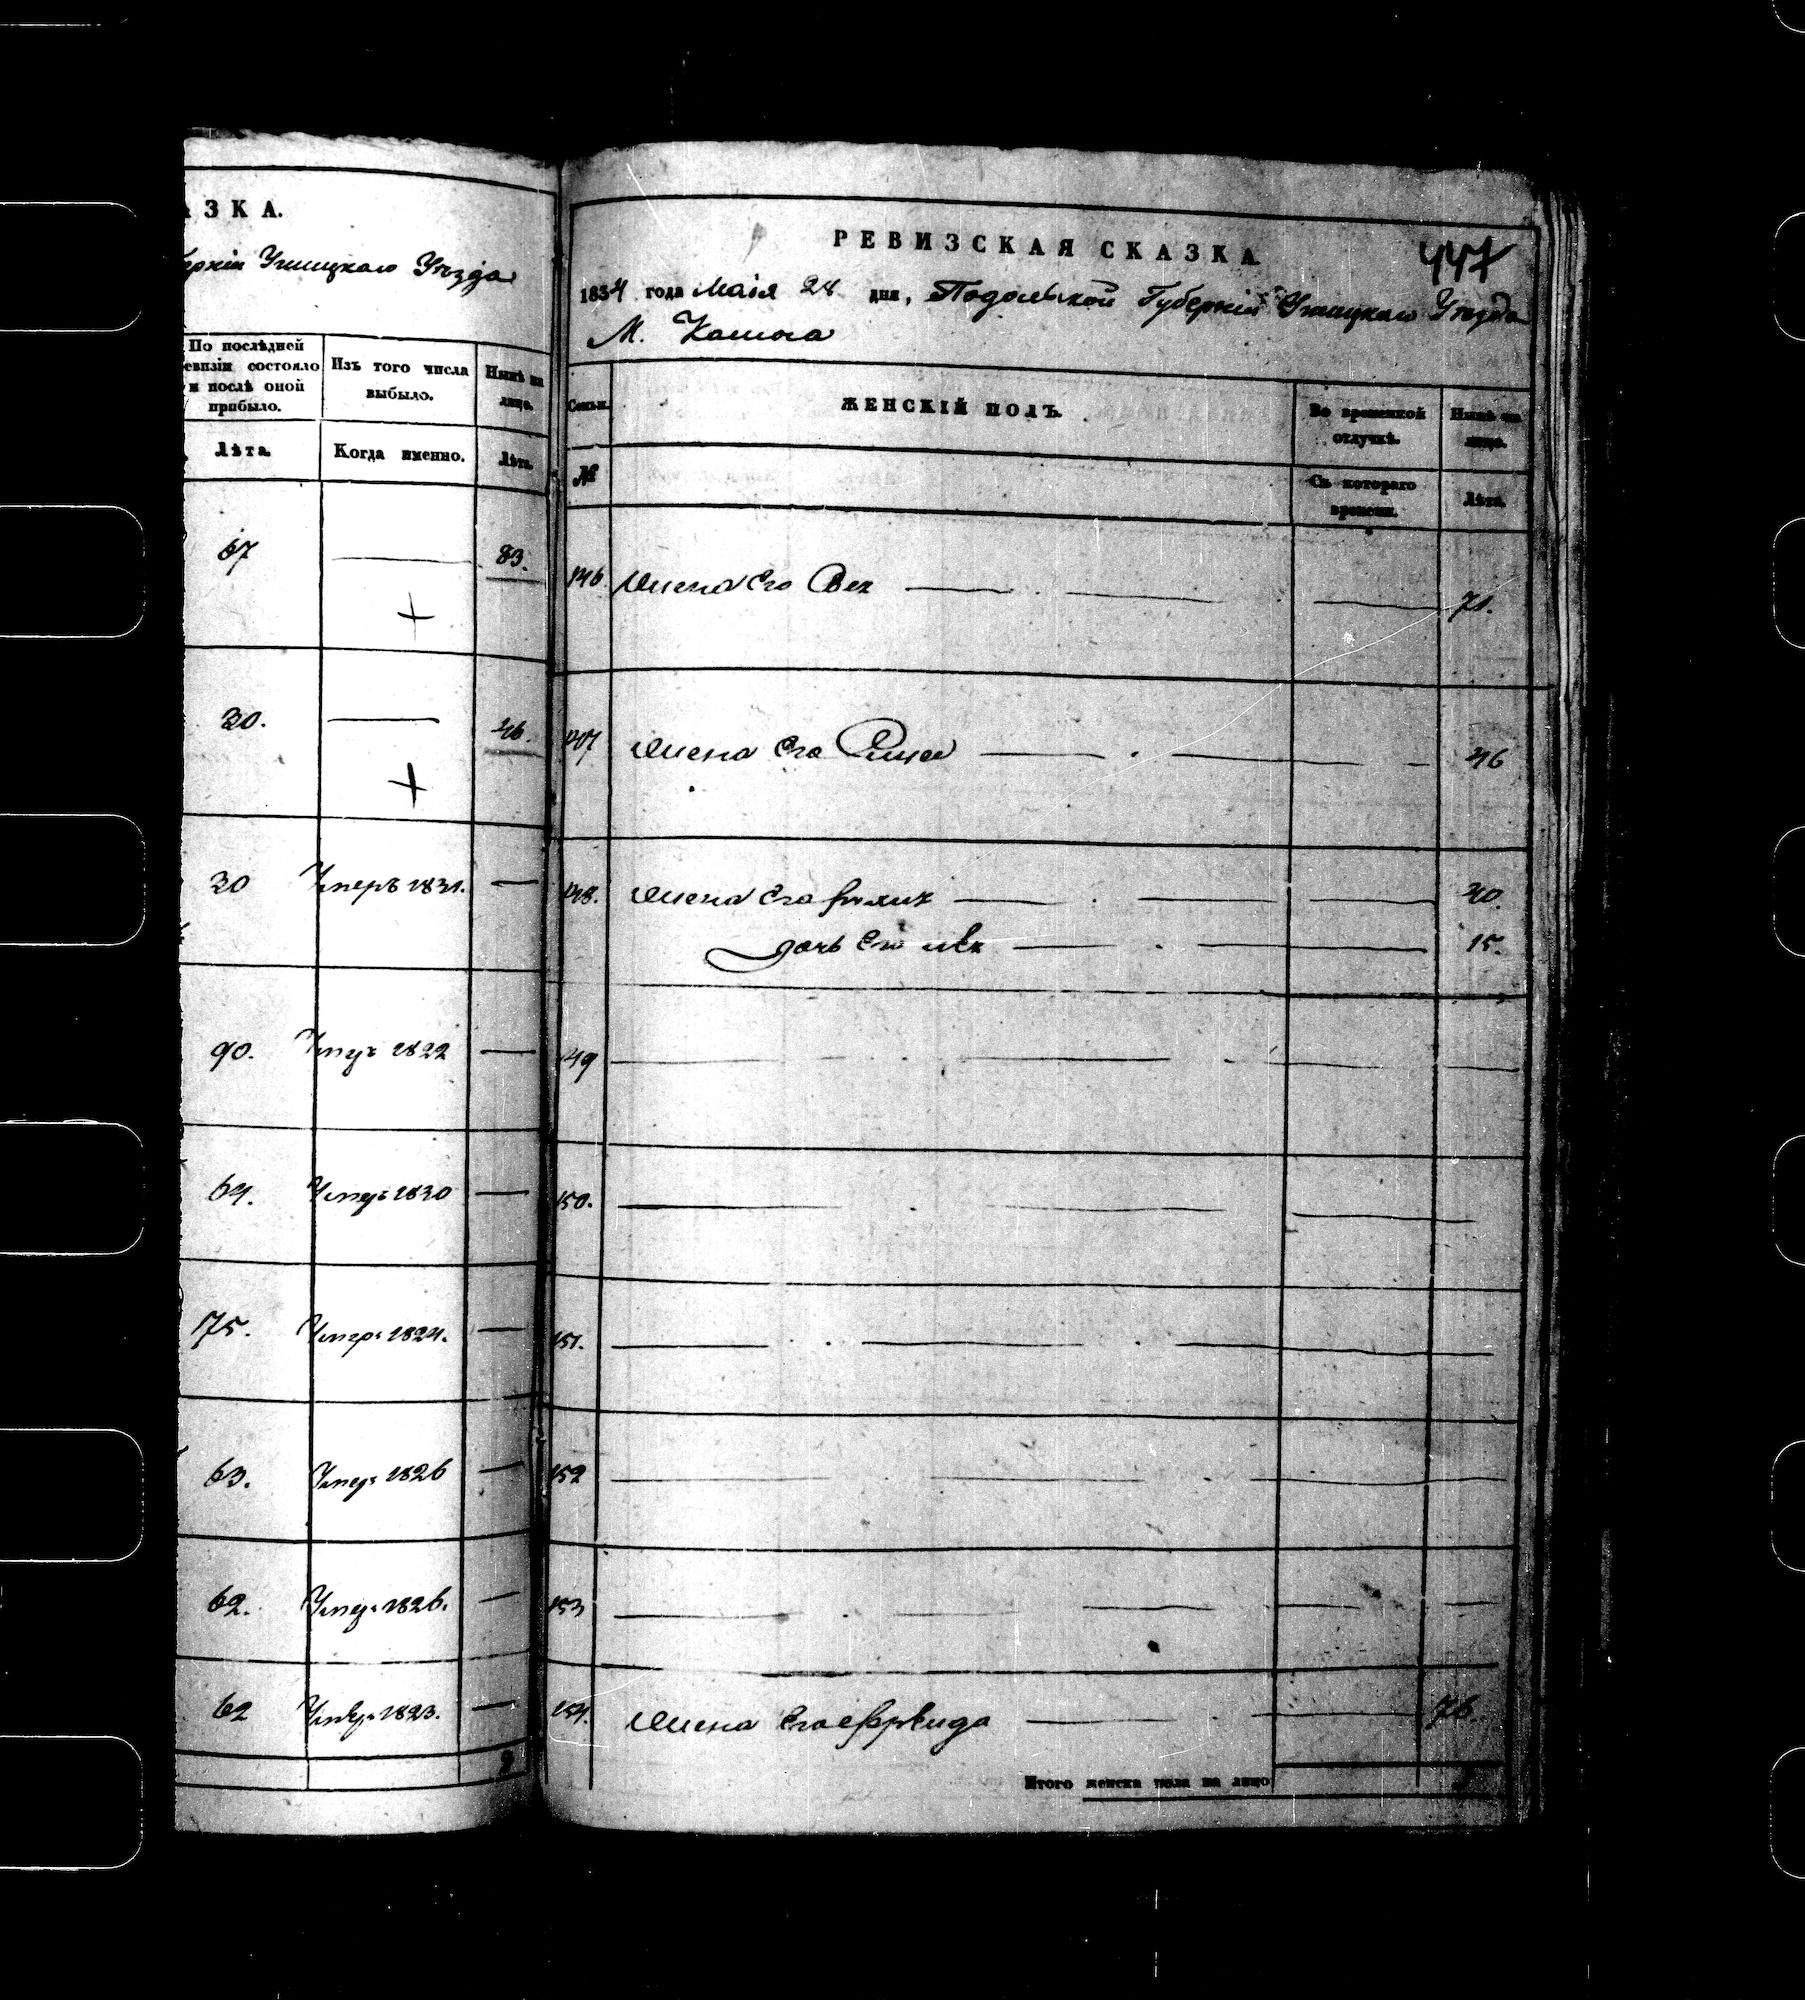 АЗКА.
ерніи Ушицкаго Уѣзда
По послѣдней
евизіи состояло
и послѣ оной
прибыло.
Изъ того числа
выбыло.
Нынѣ на
лицо.
Лѣта.
Когда именно.
Лѣта.
67 — 83.
+
30. — 46.
+
30 Умеръ 1831. —
90. Умеръ 1822 —
64. Умеръ 1830 —
75. Умеръ 1824. —
63. Умеръ 1826 —
62. Умеръ 1826. —
62 Умеръ 1823. —
9
РЕВИЗСКАЯ СКАЗКА
447
1834 года Маія 28 дня, Подольской Губерніи Ушицкаго Уѣзда
М.
Семьи.
ЖЕНСКІЙ ПОЛЪ.
Во временной
отлучкѣ.
Нынѣ на
лицо.
№
Съ котораго
времени.
Лѣта.
146. Жена Его — — — 71.
147 Жена Его — — — 46
148. Жена Его — — — 40.
дочь Его — — — 15.
149 — — — —
150. — — — —
151. — — — —
152 — — — —
153 — — — —
154. Жена Его — — — 76.
Итого женска пола на лицо